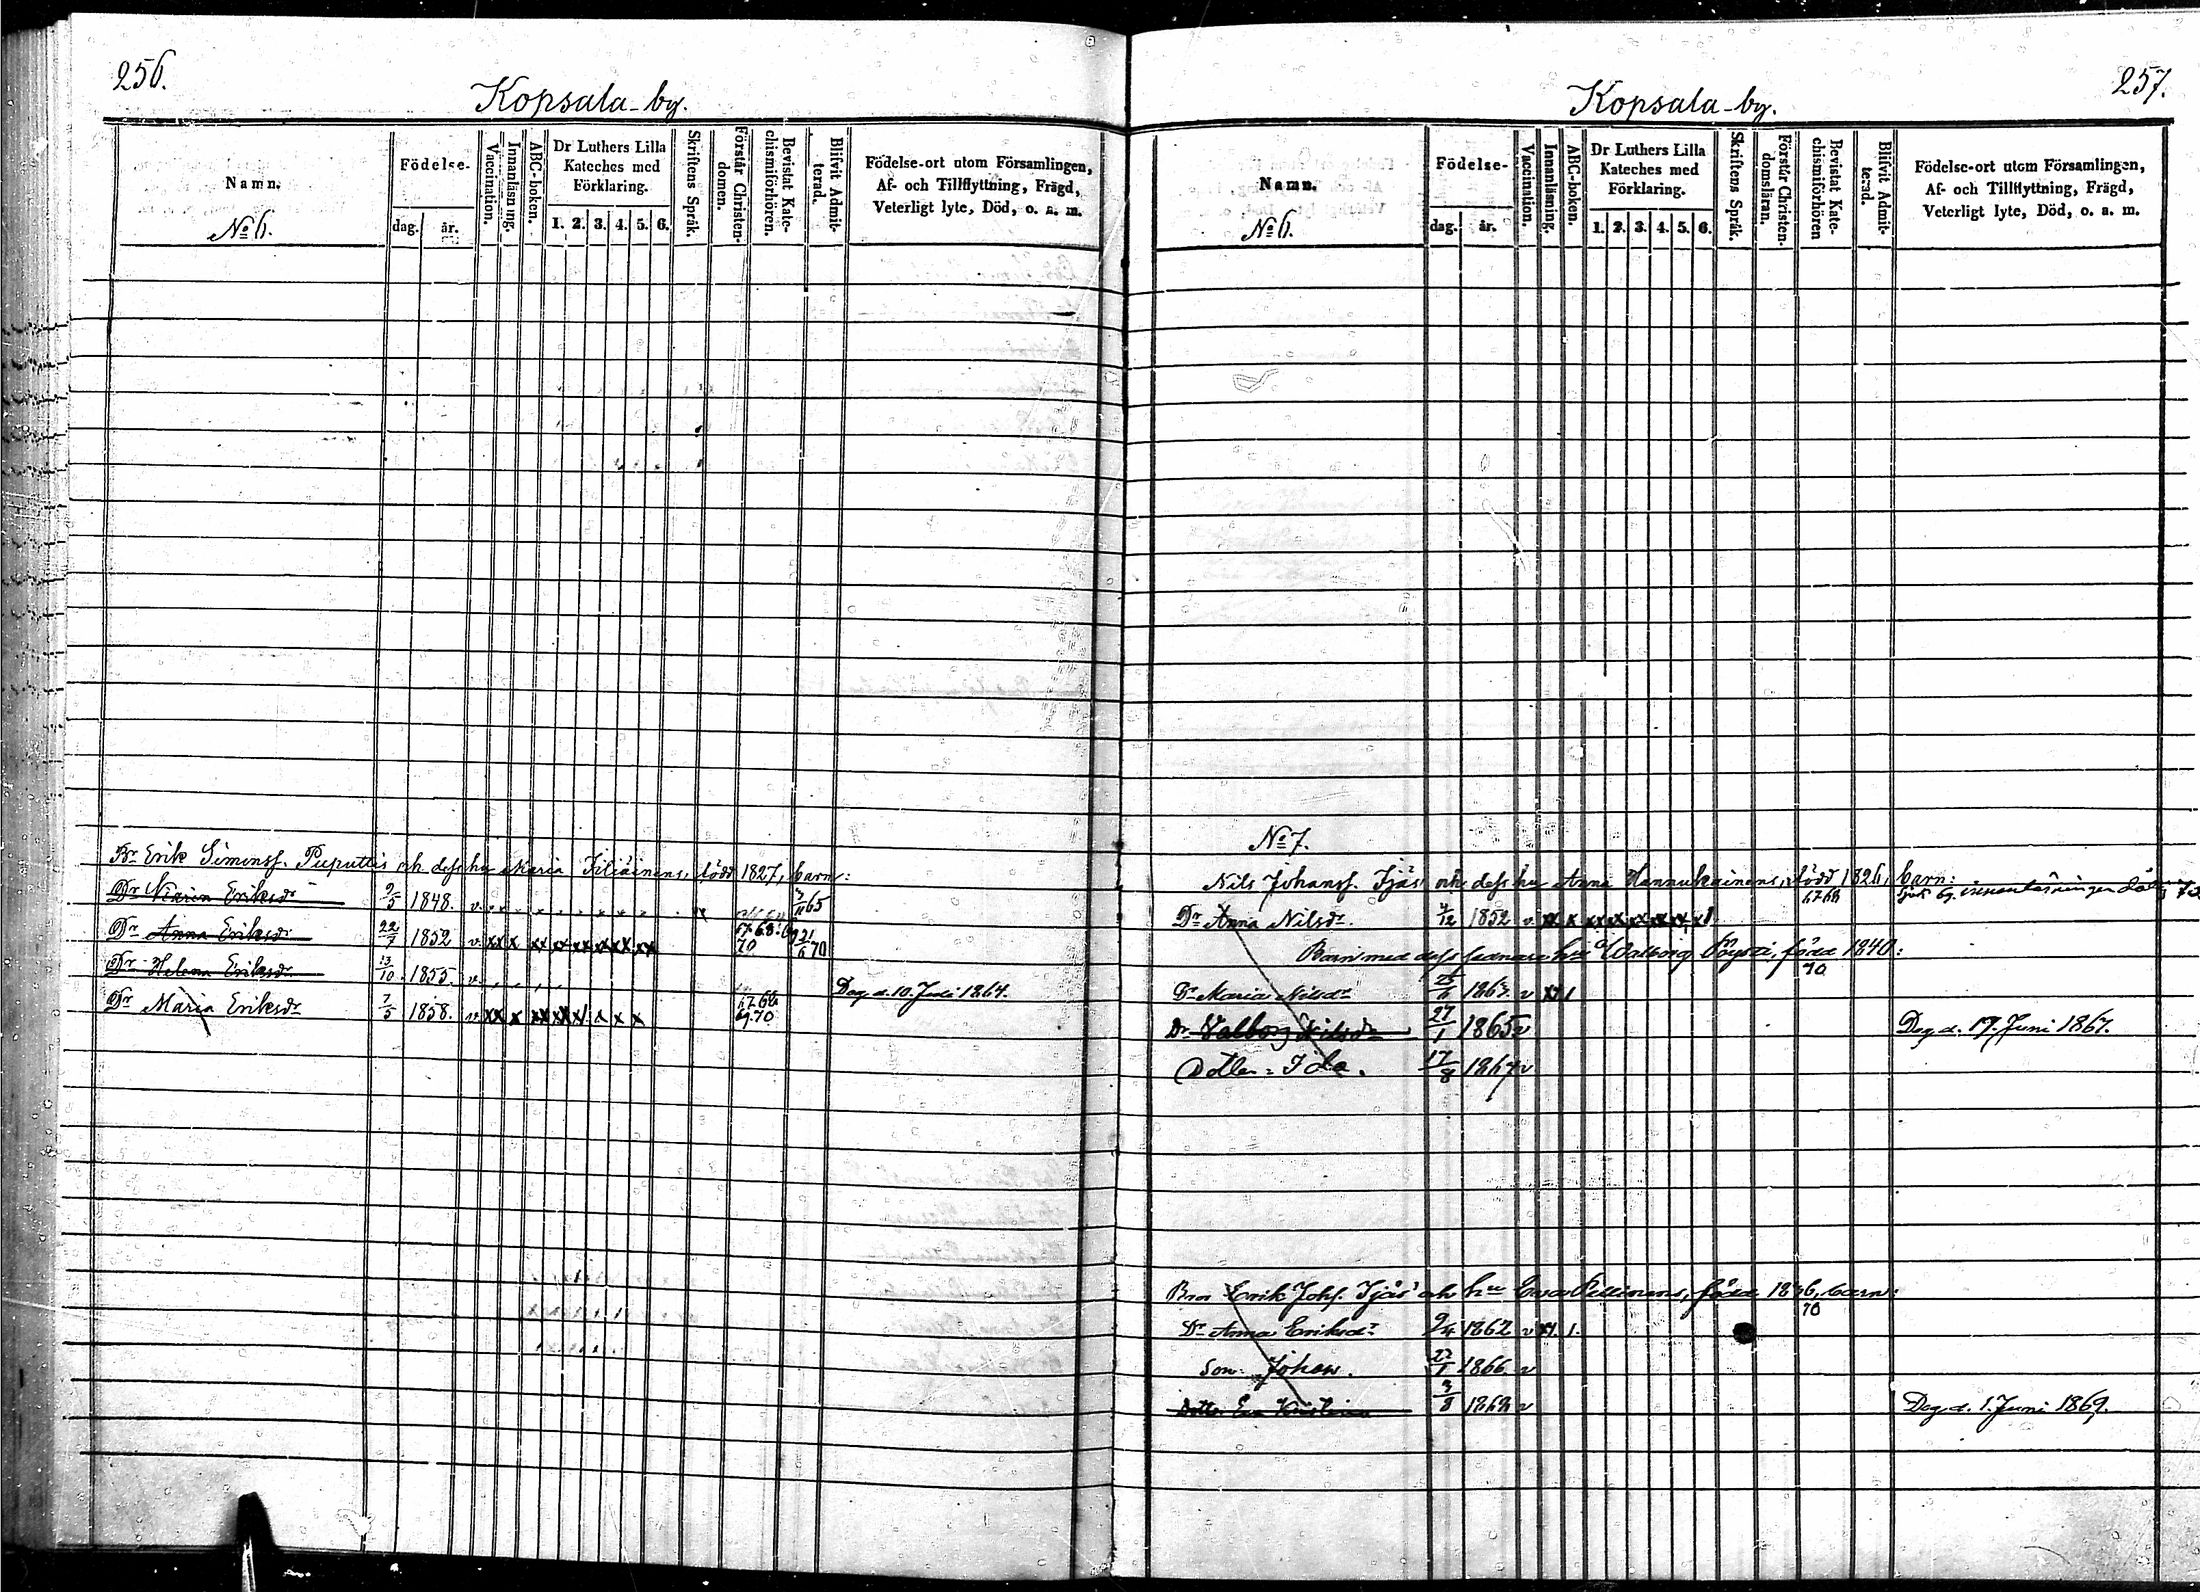 256.
Kopsala-by.
Namn.
No 6.
Födelse-
dag. år.
Vaccination.
Innanläsning.
ABC-boken.
Dr Luthers Lilla
Kateches med
Förklaring.
1. 2. 3. 4. 5. 6.
Skriftens Språk.
Förstår Christen-
domen.
Bevistat Kate-
chismiförhören.
Blifvit Admit-
terad.
Födelse-ort utom Församlingen,
Af- och Tillflyttning, Frägd,
Veterligt lyte, Död, o. s. m.
Br Erik Simonss. Puputtis och dess hu Maria Kiliäinens, född 1827, barn:
Dr Maria Eriksdr 9/5 1848. v. 65
Dr Anna Eriksdr 22/7 1852 v. xx x xx xx x x x x xx 67.68.69 70 21/6 70
Dr Helena Eriksdr 13/10 1855. v. Dog d. 10. Juli 1864.
Dr Maria Eriksdr 7/5 1858. v. xx x xx xx x x x x 67 68 69.70
257.
Kopsala-by.
Namn.
No 6.
Födelse-
dag. år.
Vaccination.
Innanläsning.
ABC-boken.
Dr Luthers Lilla
Kateches med
Förklaring.
1. 2. 3. 4. 5. 6.
Skriftens Språk.
Förstår Christen-
domsläran.
Bevistat Kate-
chismiförhören
Blifvit Admit-
terad.
Födelse-ort utom Församlingen,
Af- och Tillflyttning, Frägd,
Veterligt lyte, Död, o. a. m.
No 7.
Nils Johanss. Tjäs och dess hu Anna Hannukainens, född 1826, barn:
Dr Anna Nilsdr. 4/12 1852 v. xx x xx x x x x x 67 68 innanläsningen
Barn med dess sednare hu Walborg Pöysti, född 1840:
Dr Maria Nilsdr 1863 v xx 1 70
Dr Valborg Nilsdr 27/1 1865 v Dog d. 19. Juni 1867.
Dotter: Ida. 17/8 1867 v
Bror Erik Johs. Tjäs och hu Eva Pellinens, född 1836, barn:
Dr Anna Eriksdr 9/4 1862 v xx. 1. 70
Son: Johan. 22/1 1866 v
Dotter Eva Kristina 3/8 1868 v Dog d. 1. Juni 1869.